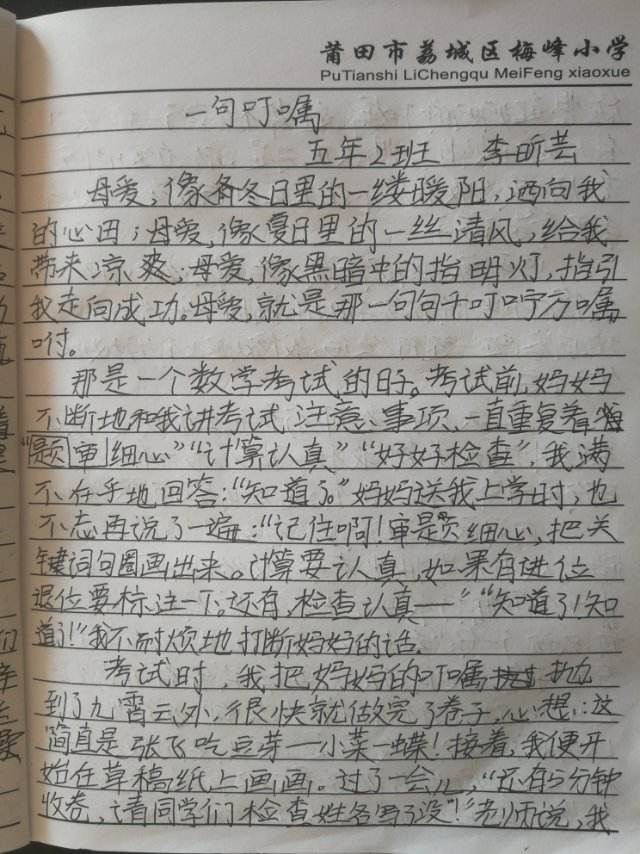 莆田市荔城区梅峰小学
PuTianshi LiChengqu MeiFeng xiaoxue
一句叮嘱
五年2班 李昕芸
母爱,像春冬日里的一缕暖阳,洒向我
的心田;母爱,像夏日里的一丝清风,给我
带来凉爽;母爱,像黑暗中的指明灯,指引
我走向成功。母爱,就是那一句句千叮咛万嘱
咐。
那是一个数学考试的日子。考试前,妈妈
不断地和我讲考试注意事项,一直重复着
“题审细心”“计算认真”“好好检查”,我满
不在乎地回答:“知道了。”妈妈送我上学时,也
不忘再说了一遍:“记住啊!审是题细心,把关
键词句圈画出来。计算要认真,如果有进位
退位要标注一下。还有,检查认真——”“知道了!知
道了!”我不耐烦地打断妈妈的话。
考试时,我把妈妈的叮嘱抛
到了九霄云外,很快就做完了卷子,心想:这
简直是张飞吃豆芽—小菜一蝶!接着,我便开
始在草稿纸上画画。过了一会儿,“还有5分钟
收卷,请同学们检查姓名写了没”!老师说,我